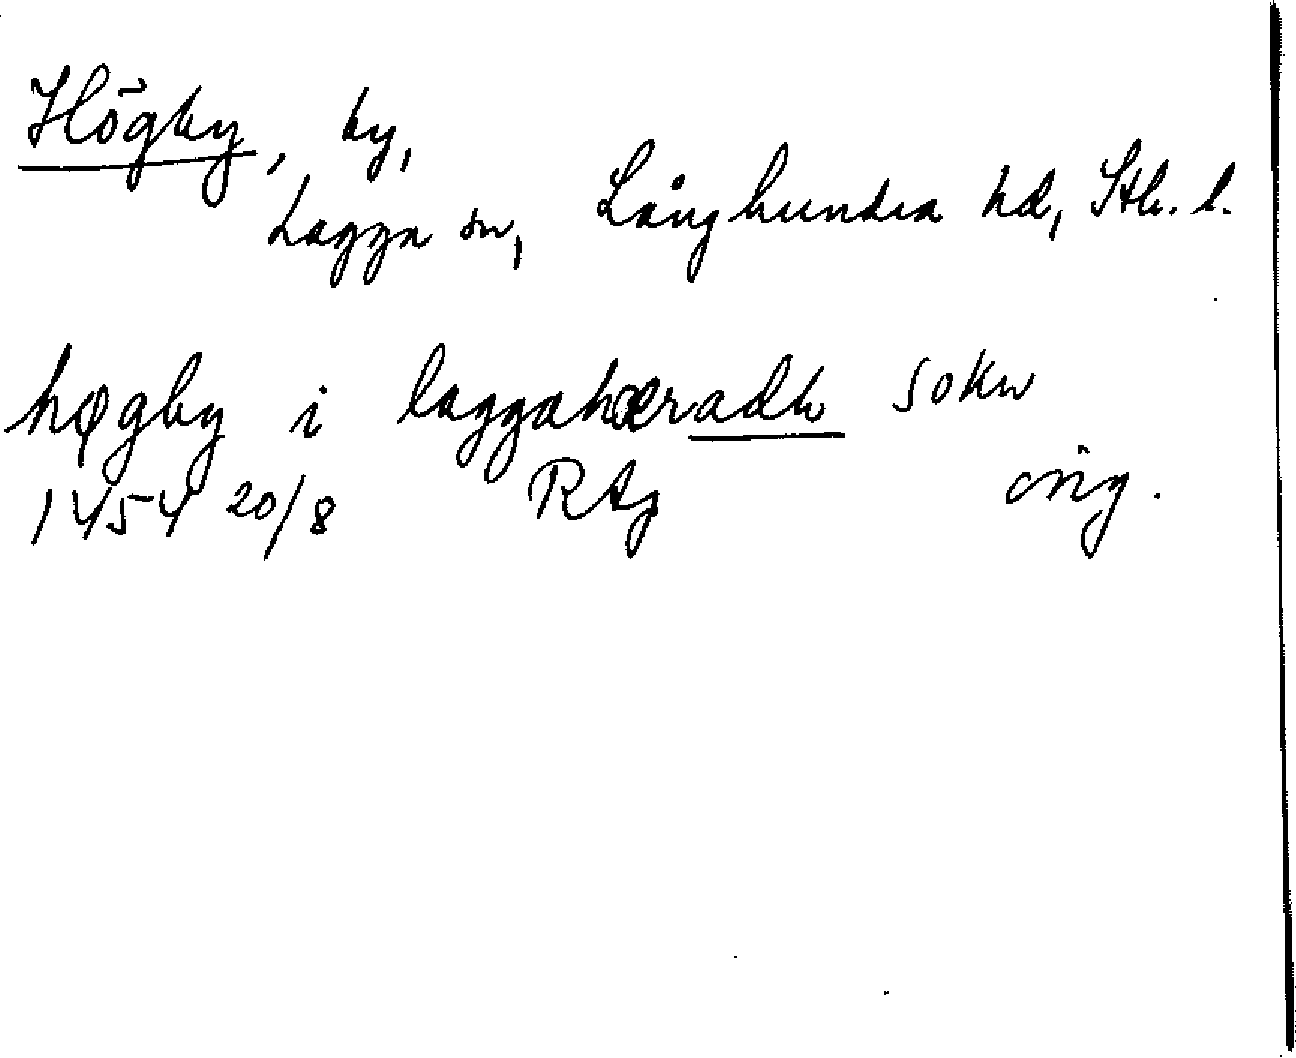 Högby, by,
Lagga sn, Långhundra hd, Sth. l.
høgby i laggahæradh sokn
1454 20/8 RAp orig.